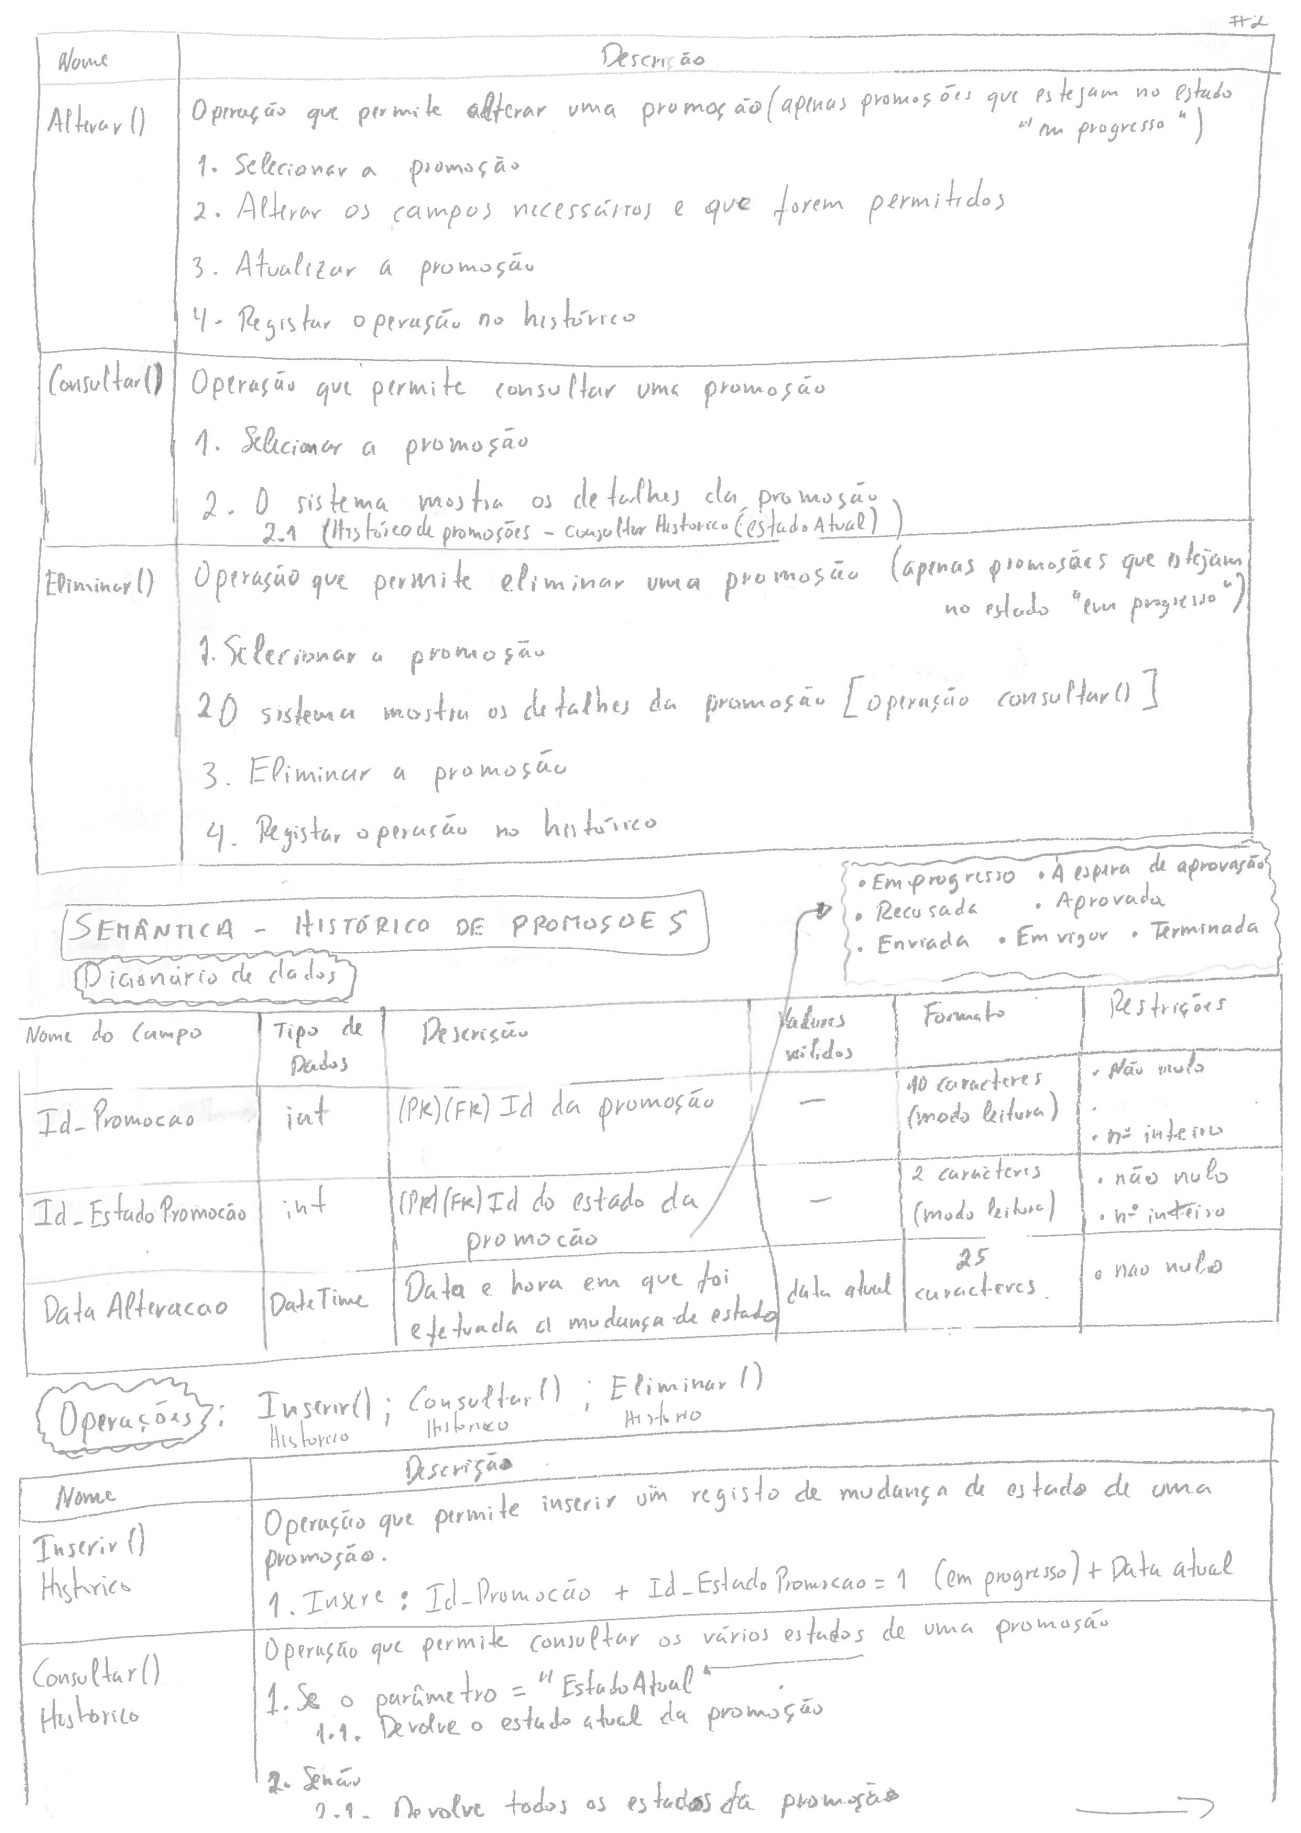 #2
Nome Descrição
Alterar() Operação que permite alterar uma promoção (apenas promoções que estejam no estado
"em progresso")
1. Selecionar a promoção
2. Alterar os campos necessários e que forem permitidos
3. Atualizar a promoção
4. Registar operação no histórico
Consultar() Operação que permite consultar uma promoção
1. Selecionar a promoção
2. O sistema mostra os detalhes da promoção
2.1 (Histórico de promoções - consultar Historico (estado Atual))
Eliminar() Operação que permite eliminar uma promoção (apenas promoções que estejam
no estado "em progresso")
1. Selecionar a promoção
2 O sistema mostra os detalhes da promoção [operação consultar()]
3. Eliminar a promoção
4. Registar operação no histórico
• Em progresso • À espera de aprovação
• Recusada • Aprovada
• Enviada • Em vigor • Terminada
SEMÂNTICA - HISTÓRICO DE PROMOÇOES
Dicionário de dados
Nome do Campo Tipo de Dados Descrição Valores válidos Formato Restrições
Id_Promocao int (PK)(FK) Id da promoção — 10 caracteres (modo leitura) • Não nulo • nº inteiro
Id_EstadoPromocão int (PK)(FK) Id do estado da promocão — 2 caracteres (modo leitura) • não nulo • nº inteiro
Data Alteracao DateTime Data e hora em que foi efetuada a mudança de estado data atual 25 caracteres. • nao nulo
Operações: Inserir(); Consultar(); Eliminar()
Historico Historico
Nome Descrição
Inserir() Historico Operação que permite inserir um registo de mudança de estado de uma
promoção.
1. Insere: Id_Promocão + Id_EstadoPromocao = 1 (em progresso) + Data atual
Consultar() Historico Operação que permite consultar os vários estados de uma promoção
1. Se o parâmetro = "EstadoAtual"
1.1. Devolve o estado atual da promoção
2. Senão
2.1. Devolve todos os estados da promoção